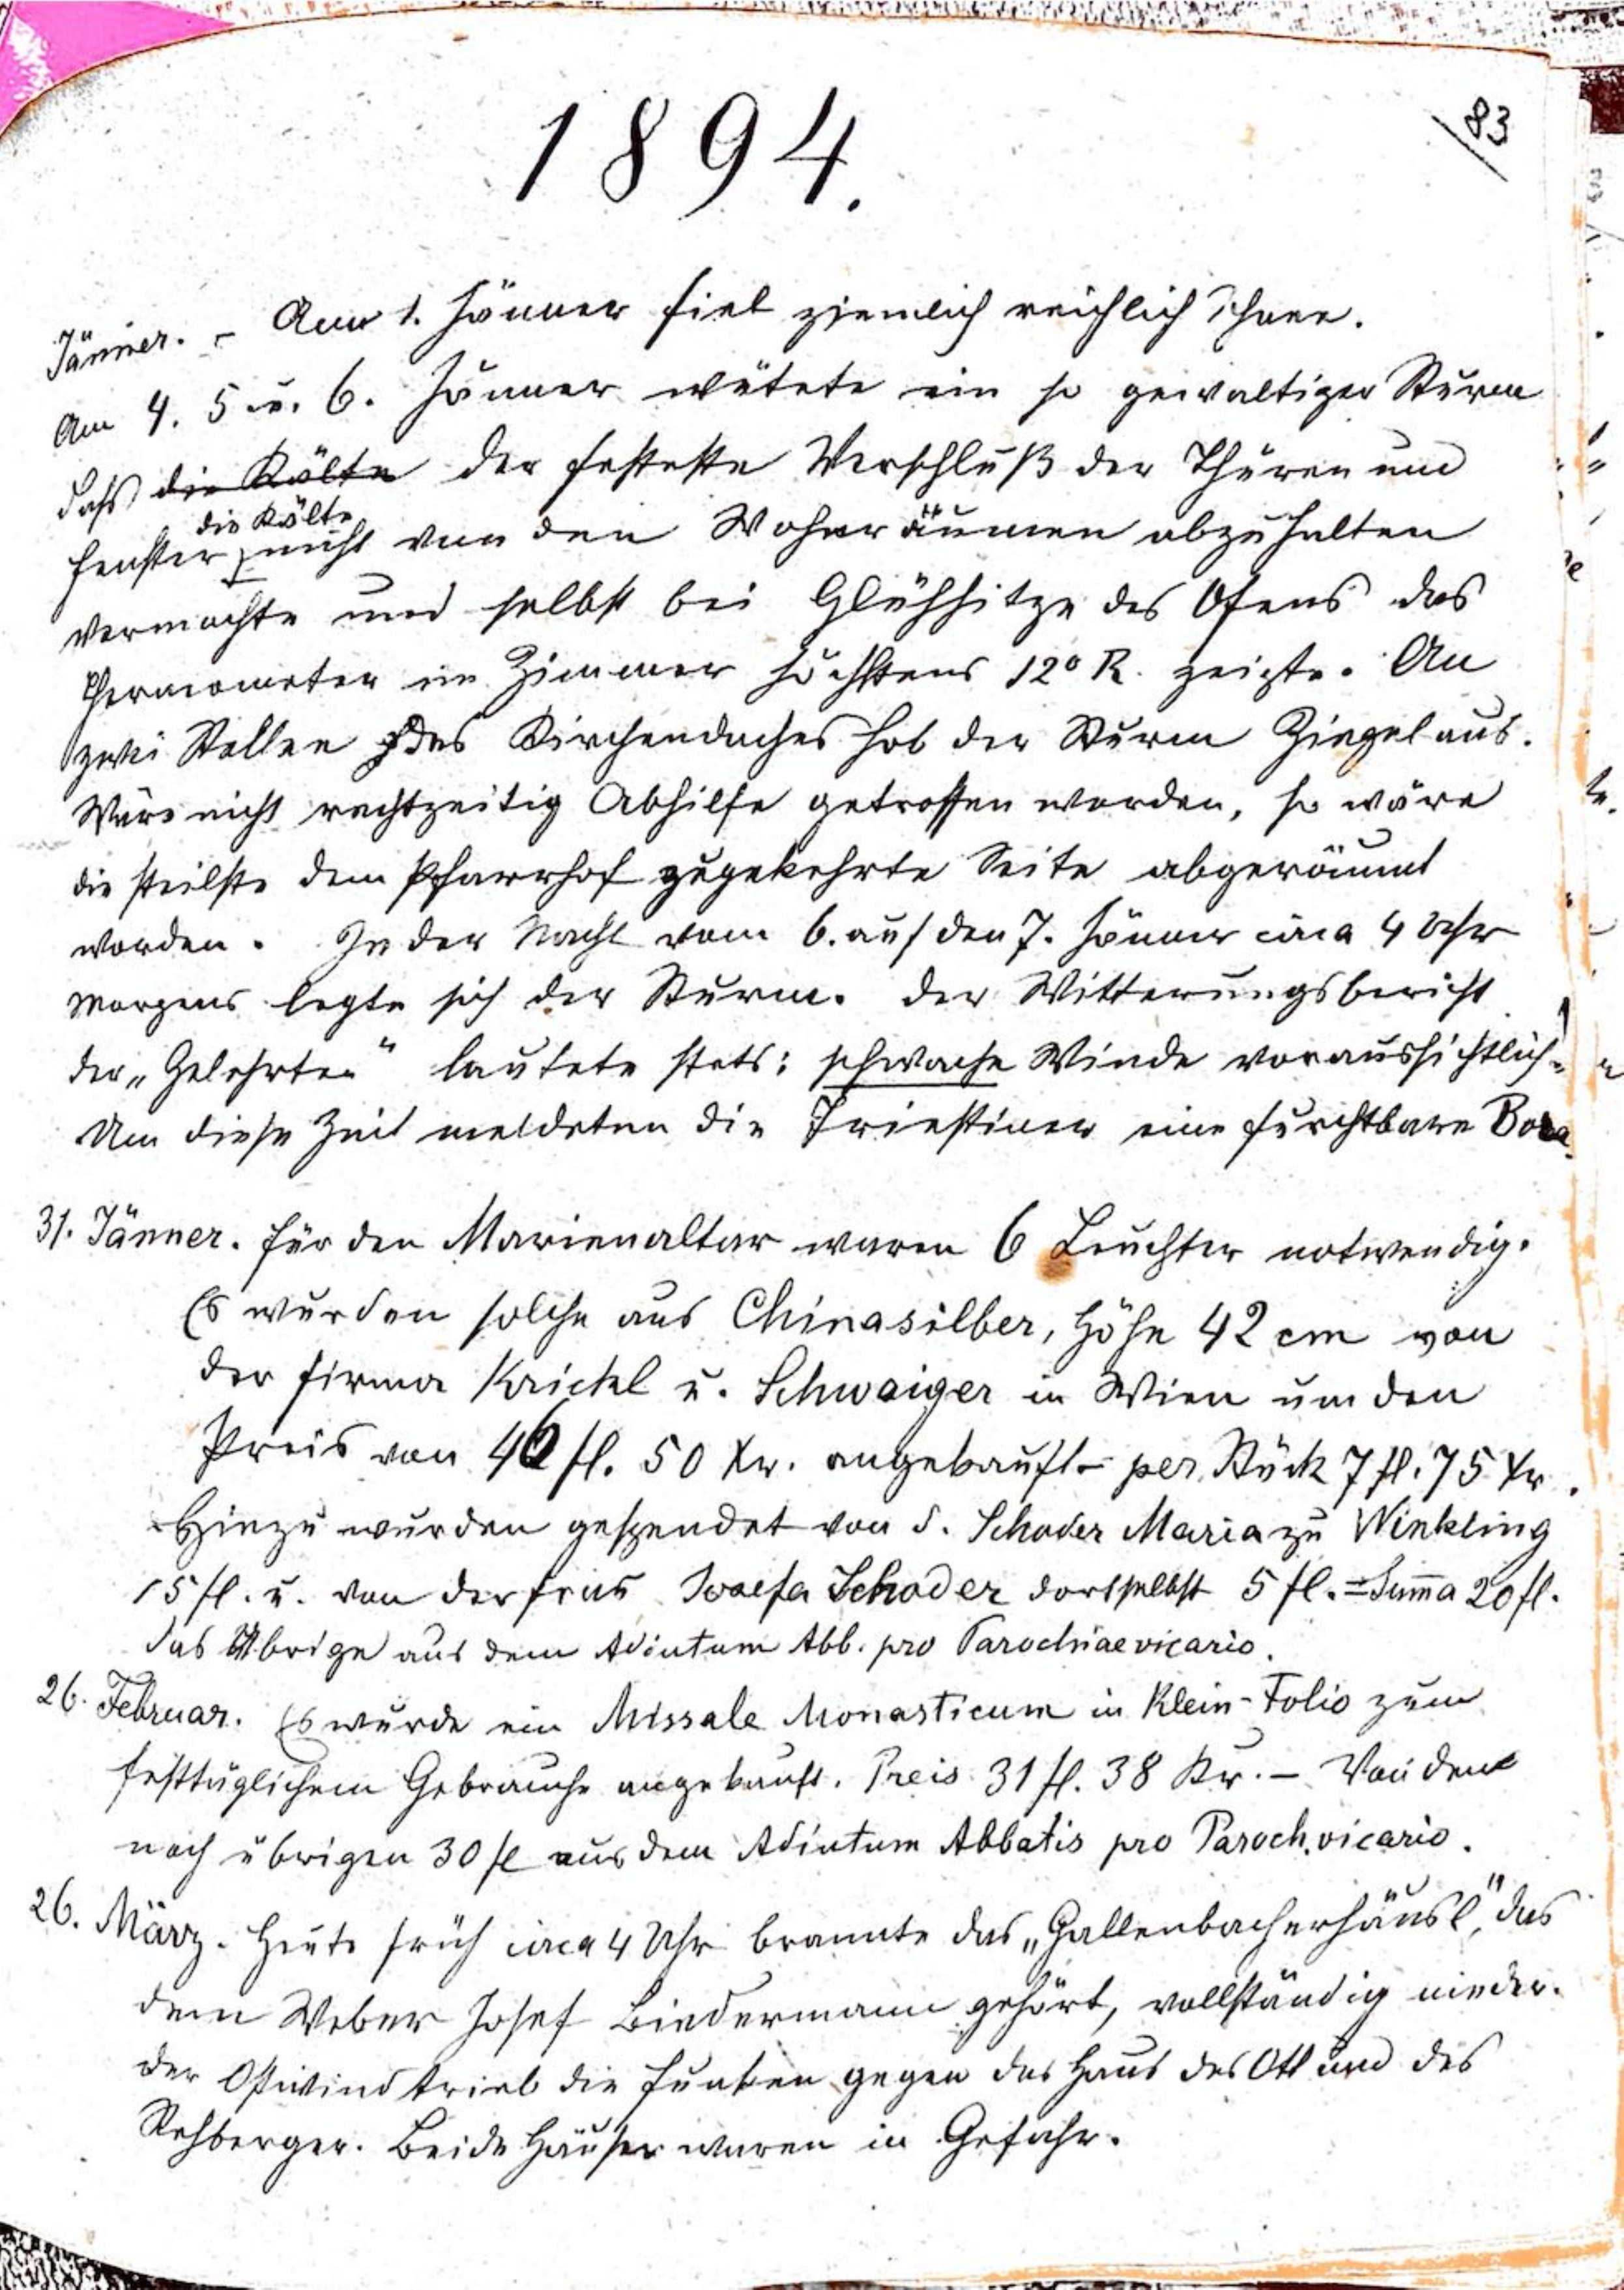 83
1894.
Jänner. – Am 1. Jänner fiel ziemlich reichlich Schnee.
Am 4. 5 u. 6. Jänner wütete ein so gewaltiger Sturm
daß die Kälte der festeste Verschluß der Thüren und
die Kälte
Fenster nicht von den Wohnräumen abzuhalten
vermochte und selbst bei Glühhitze des Ofens das
Thermometer im Zimmer höchstens 12° R. zeigte. An
zwei Stellen des Kirchendaches hob der Sturm Ziegel aus.
Wäre nicht rechtzeitig Abhilfe getroffen worden, so wäre
die steilste dem Pfarrhof zugekehrte Seite abgeräumt
worden. In der Nacht vom 6. auf den 7. Jänner circa 4 Uhr
Morgens legte sich der Sturm. Der Witterungsbericht
der „Gelehrten“ lautete stets: schwache Winde voraussichtlich!
Um diese Zeit meldeten die Triestiner eine furchtbare Bora.
31. Jänner. Für den Marienaltar waren 6 Leuchter notwendig.
Es wurden solche aus Chinasilber, Höhe 42 cm von
der Firma Krickl u. Schwaiger in Wien um den
Preis von 46 fl. 50 Kr. angekauft – per Stück 7 fl. 75 Kr.
Hiezu wurden gespendet von d. Schoder Maria zu Winkling
15 fl. u. von der Frau Josefa Schoder dortselbst 5 fl. = Summa 20 fl.
das Übrige aus dem Adiutum Abb. pro Parochiae vicario.
26. Februar. Es wurde ein Missale Monasticum in Klein-Folio zum
festtäglichem Gebrauche angekauft. Preis 31 fl. 38 Kr. – Von den
noch übrigen 30 fl aus dem Adiutum Abbatis pro Paroch. vicario.
26. März. Heute früh circa 4 Uhr brannte das „Gallenbacherhäusl“, das
dem Weber Josef Biedermann gehört, vollständig nieder.
Der Ostwind trieb die Funken gegen das Haus des Ott und des
Rehberger. Beide Häuser waren in Gefahr.